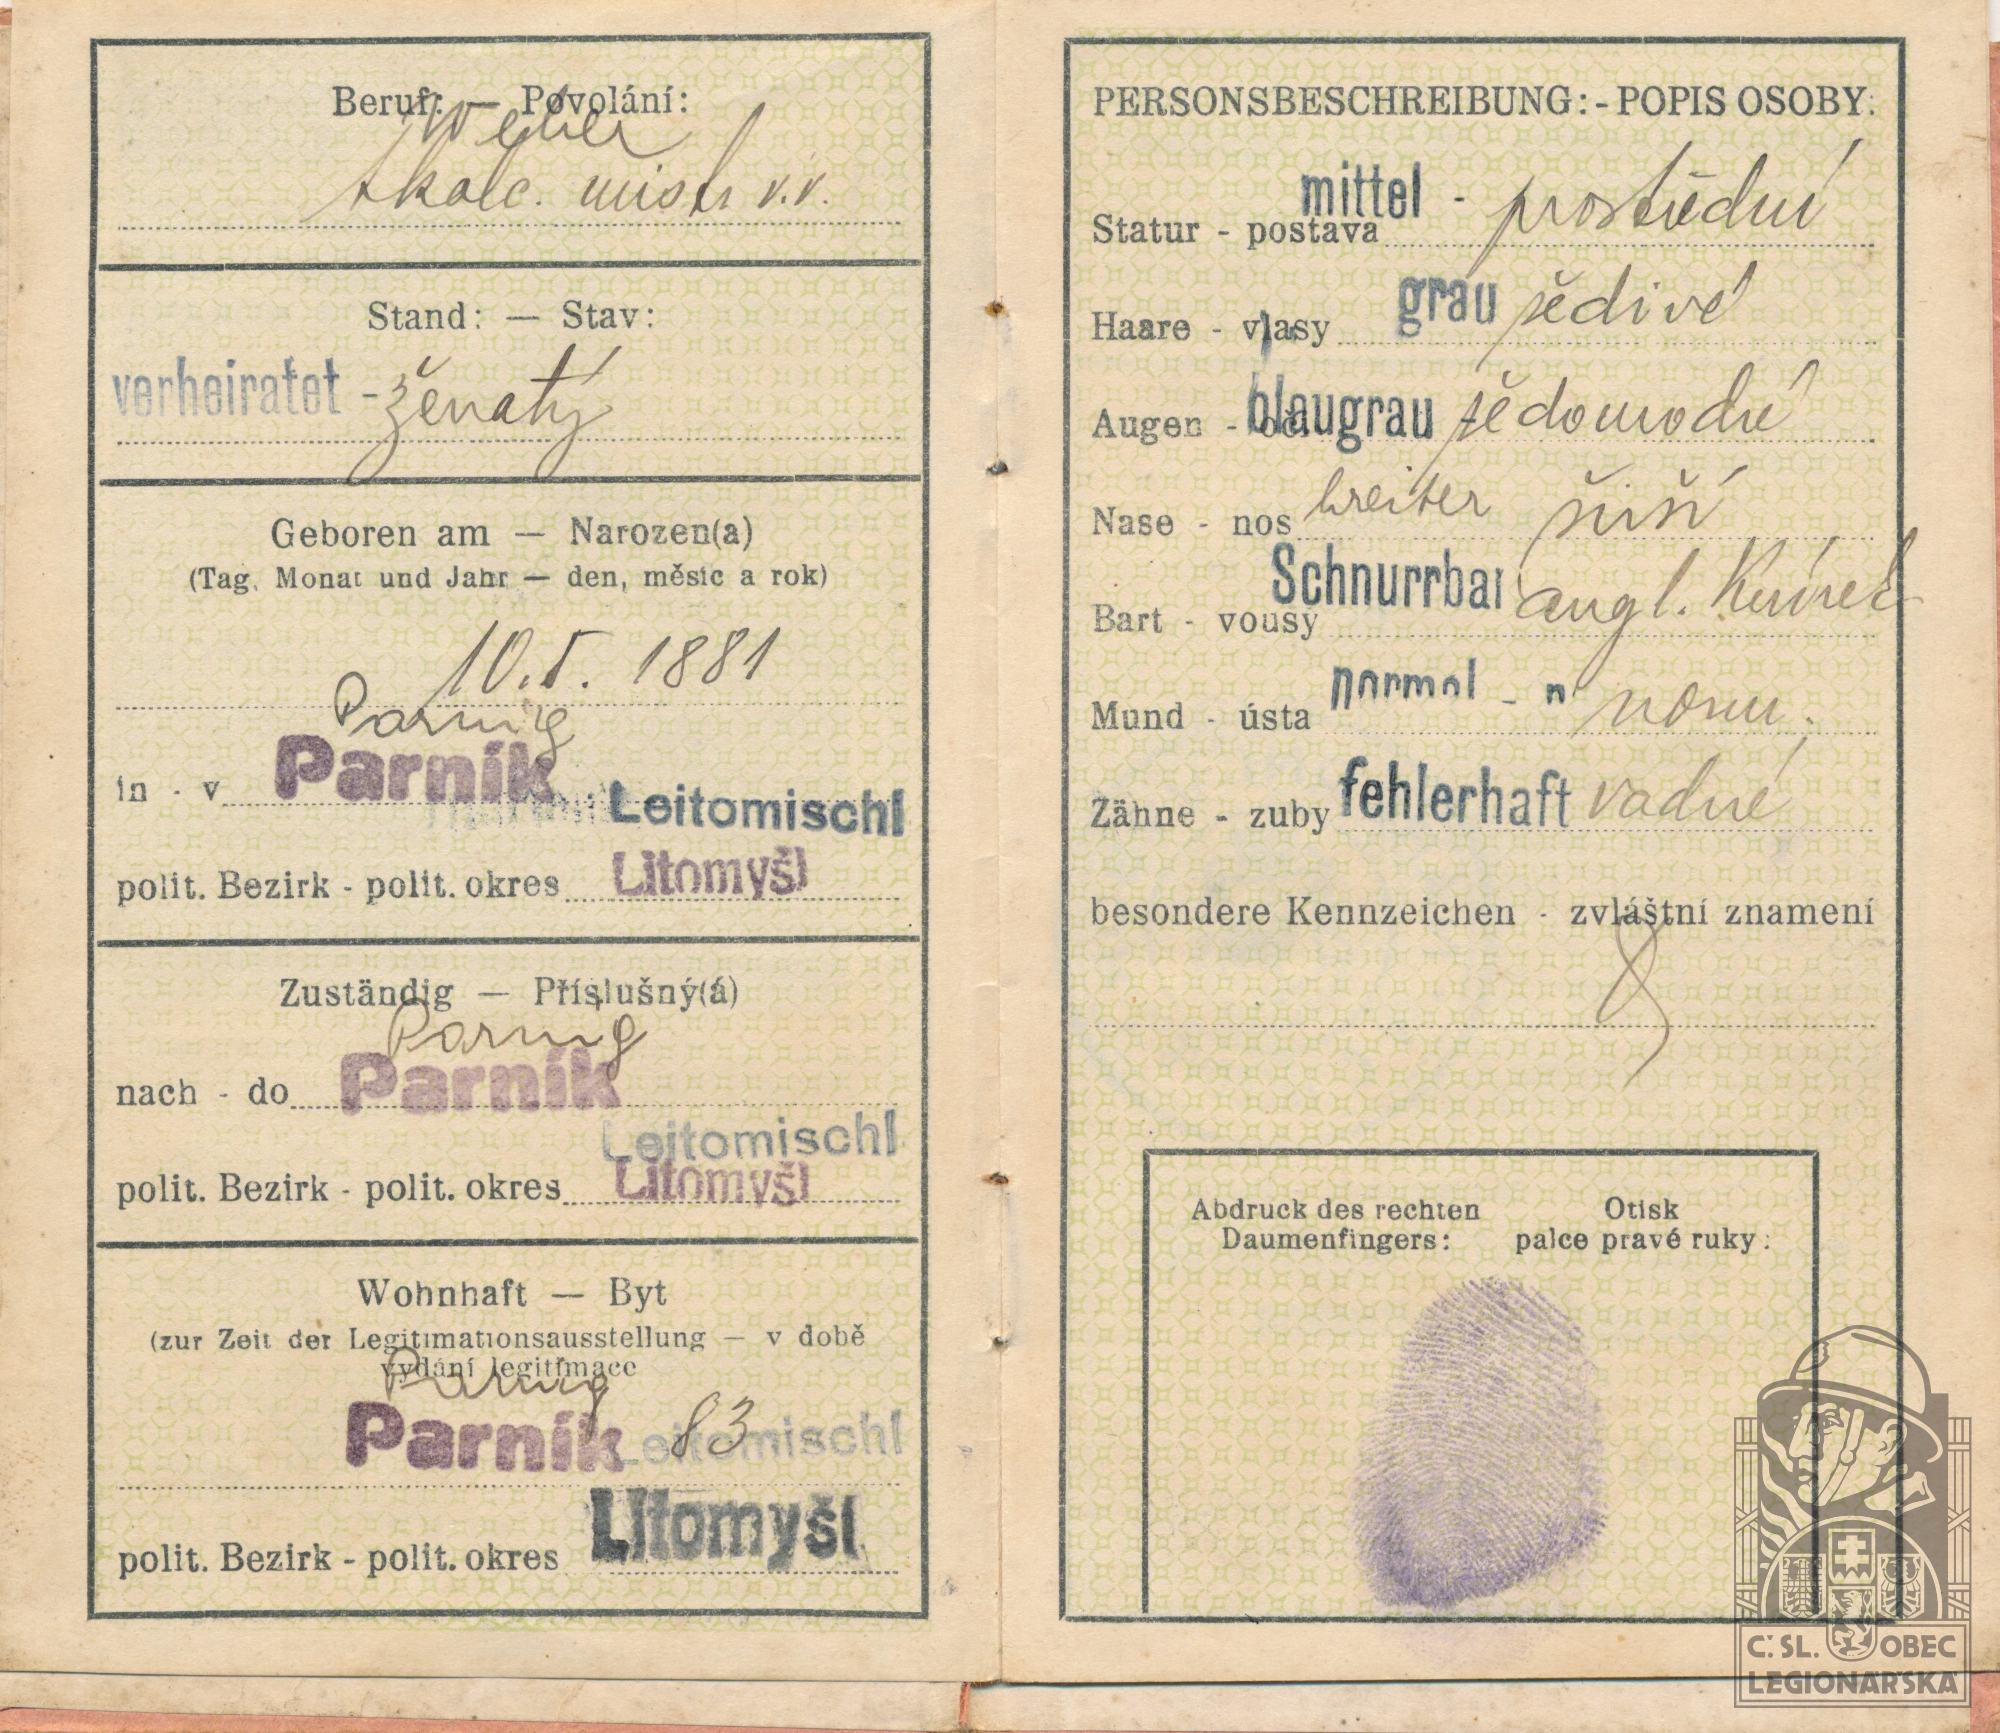 Beruf: — Povolání:
Weber
tkalc. mistr v.v.
Stand: — Stav:
verheiratet - ženatý
Geboren am — Narozen(a)
(Tag, Monat und Jahr — den, měsíc a rok)
10. 5. 1881
Parnig
in - v Parník Leitomischl
polit. Bezirk - polit. okres Litomyšl
Zuständig — Příslušný(á)
Parnig
nach - do Parník
Leitomischl
polit. Bezirk - polit. okres Litomyšl
Wohnhaft — Byt
(zur Zeit der Legitimationsausstellung — v době
vydání legitimace
Parnig
Parník 83 Leitomischl
polit. Bezirk - polit. okres Litomyšl
PERSONSBESCHREIBUNG: - POPIS OSOBY:
Statur - postava mittel - prostřední
Haare - vlasy grau šedivé
Augen - oči blaugrau šedomodré
Nase - nos breiter širší
Bart - vousy Schnurrbar angl. knírek
Mund - ústa normal - n norm.
Zähne - zuby fehlerhaft vadné
besondere Kennzeichen - zvláštní znamení
Abdruck des rechten Otisk
Daumenfingers: palce pravé ruky:
Č. SL. OBEC
LEGIONÁŘSKÁ